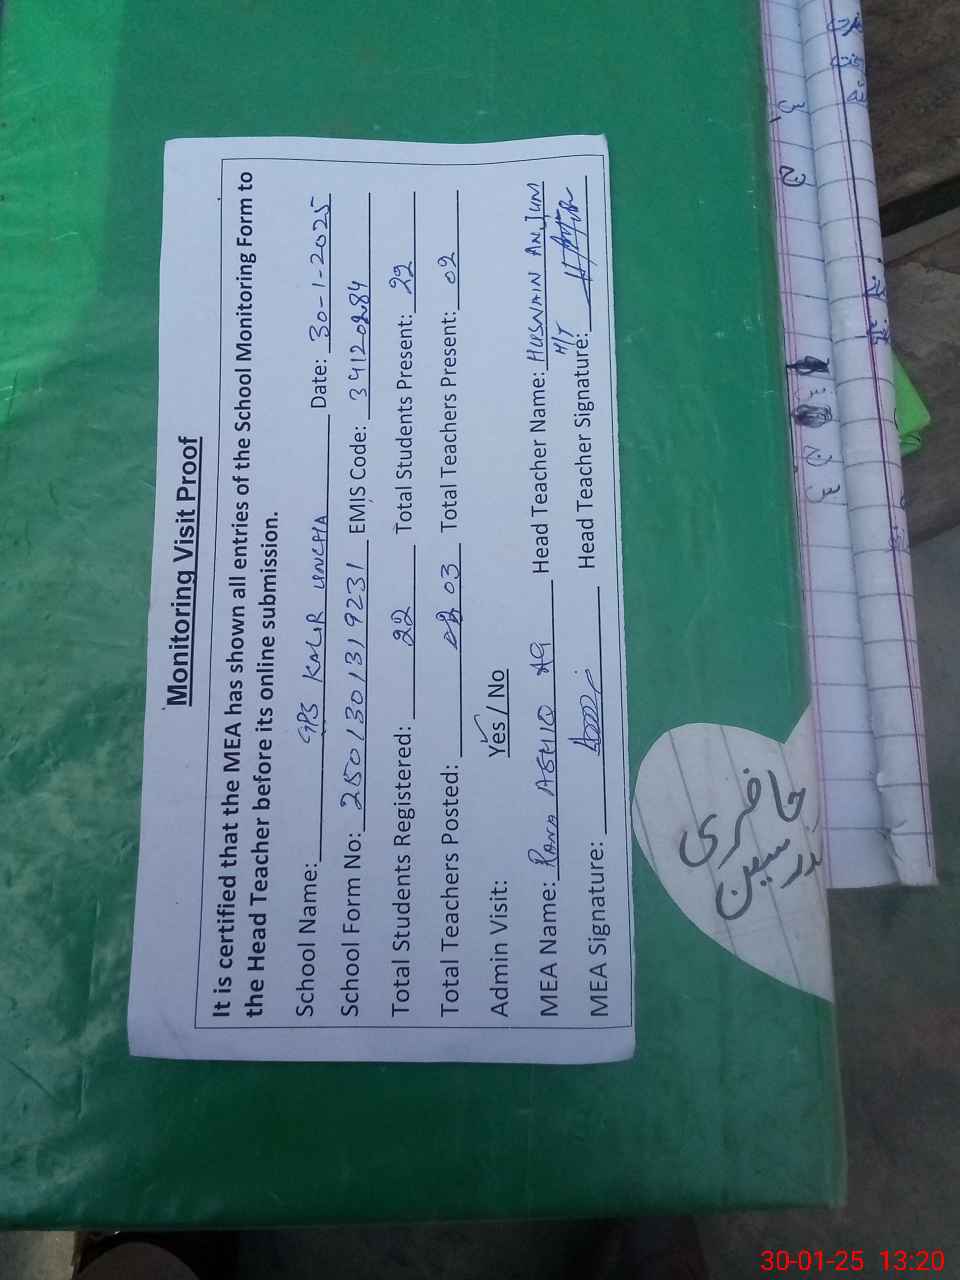 Monitoring Visit Proof
It is certified that the MEA has shown all entries of the School Monitoring Form to
the Head Teacher before its online submission.
School Name: GPS KALAR UNCHA Date: 30-1-2025
School Form No: 2501301319231 EMIS Code: 39120284
Total Students Registered: 22 Total Students Present: 22
Total Teachers Posted: 03 Total Teachers Present: 02
Admin Visit: Yes / No
MEA Name: Rana ASHIQ Ag Head Teacher Name: HUSNAIN ANJUM
H/T
MEA Signature: Head Teacher Signature:
حاضری
مدرسین
30-01-25 13:20